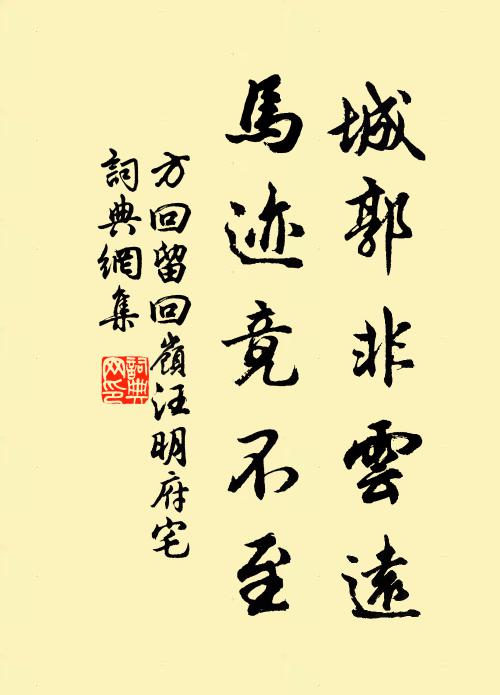 城郭非雲遠
馬迹竟不至
方回留回嶺汪明府宅
詞典網集
詞典網印